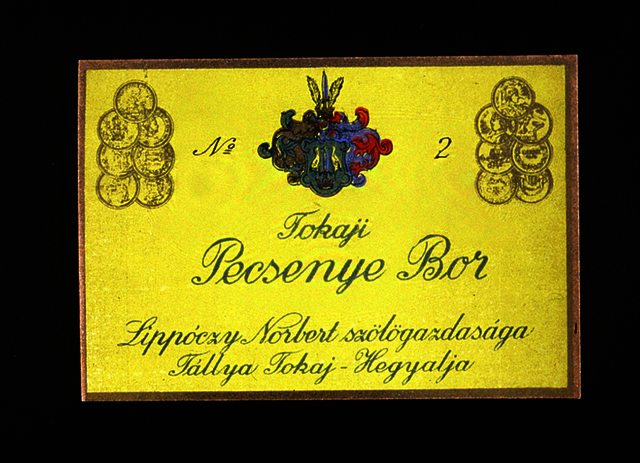 Nº 2
Tokaji
Pecsenye Bor
Lippóczy Norbert szölögazdasága
Tállya Tokaj-Hegyalja